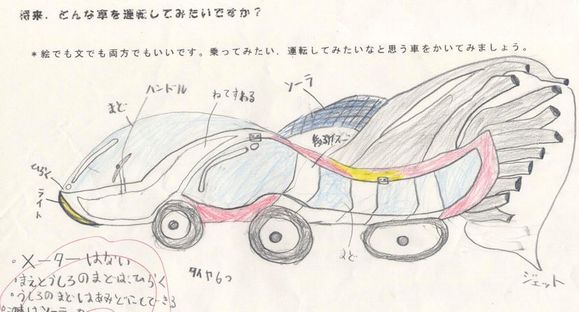 将来、どんな車を運転してみたいですか？
＊絵でも文でも両方でもいいです。乗ってみたい、運転してみたいなと思う車をかいてみましょう。
ソーラ
ハンドル
ねてすわる
まど
ひらく
ライト
まど
タイヤ6つ
ジェット
・メーターはない
・まえとうしろのまどは、ひらく
・うしろのまどはあみどにもできる